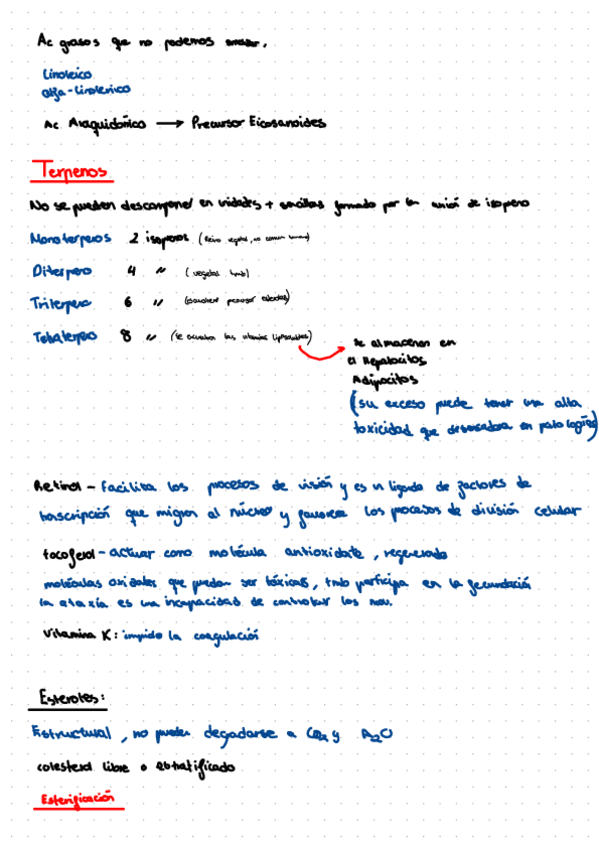 Ac grasos que no podemos
Linoleico
alfa-Linolenico
Ac Araquidónico → Precursor Eicosanoides
Terpenos
No se pueden descomponer en unidades + sencillas formado por la unión de isopreno
Monoterpenos 2 isoprenos (Reino vegetal, no común
Diterpeno 4 " (vegetal
Triterpeno 6 " (
Tetraterpeno 8 " (se encuentran las vitaminas liposolubles)
se almacenan en
el Hepatocitos
Adipocitos
(su exceso puede tener una alta
toxicidad que en patologías)
Retinol - Facilita los procesos de visión y es un ligando de factores de
transcripción que migran al núcleo y favorece los procesos de división celular
tocoferol - actuar como molécula antioxidante, regenerando
moléculas oxidadas que puedan ser tóxicas, tmb participa en la fecundación
la ataxia es una incapacidad de controlar los mov.
Vitamina K: impide la coagulación
Esteroles:
Estructural, no pueden degradarse a CO2 y H2O
colesterol libre o
Esterificación